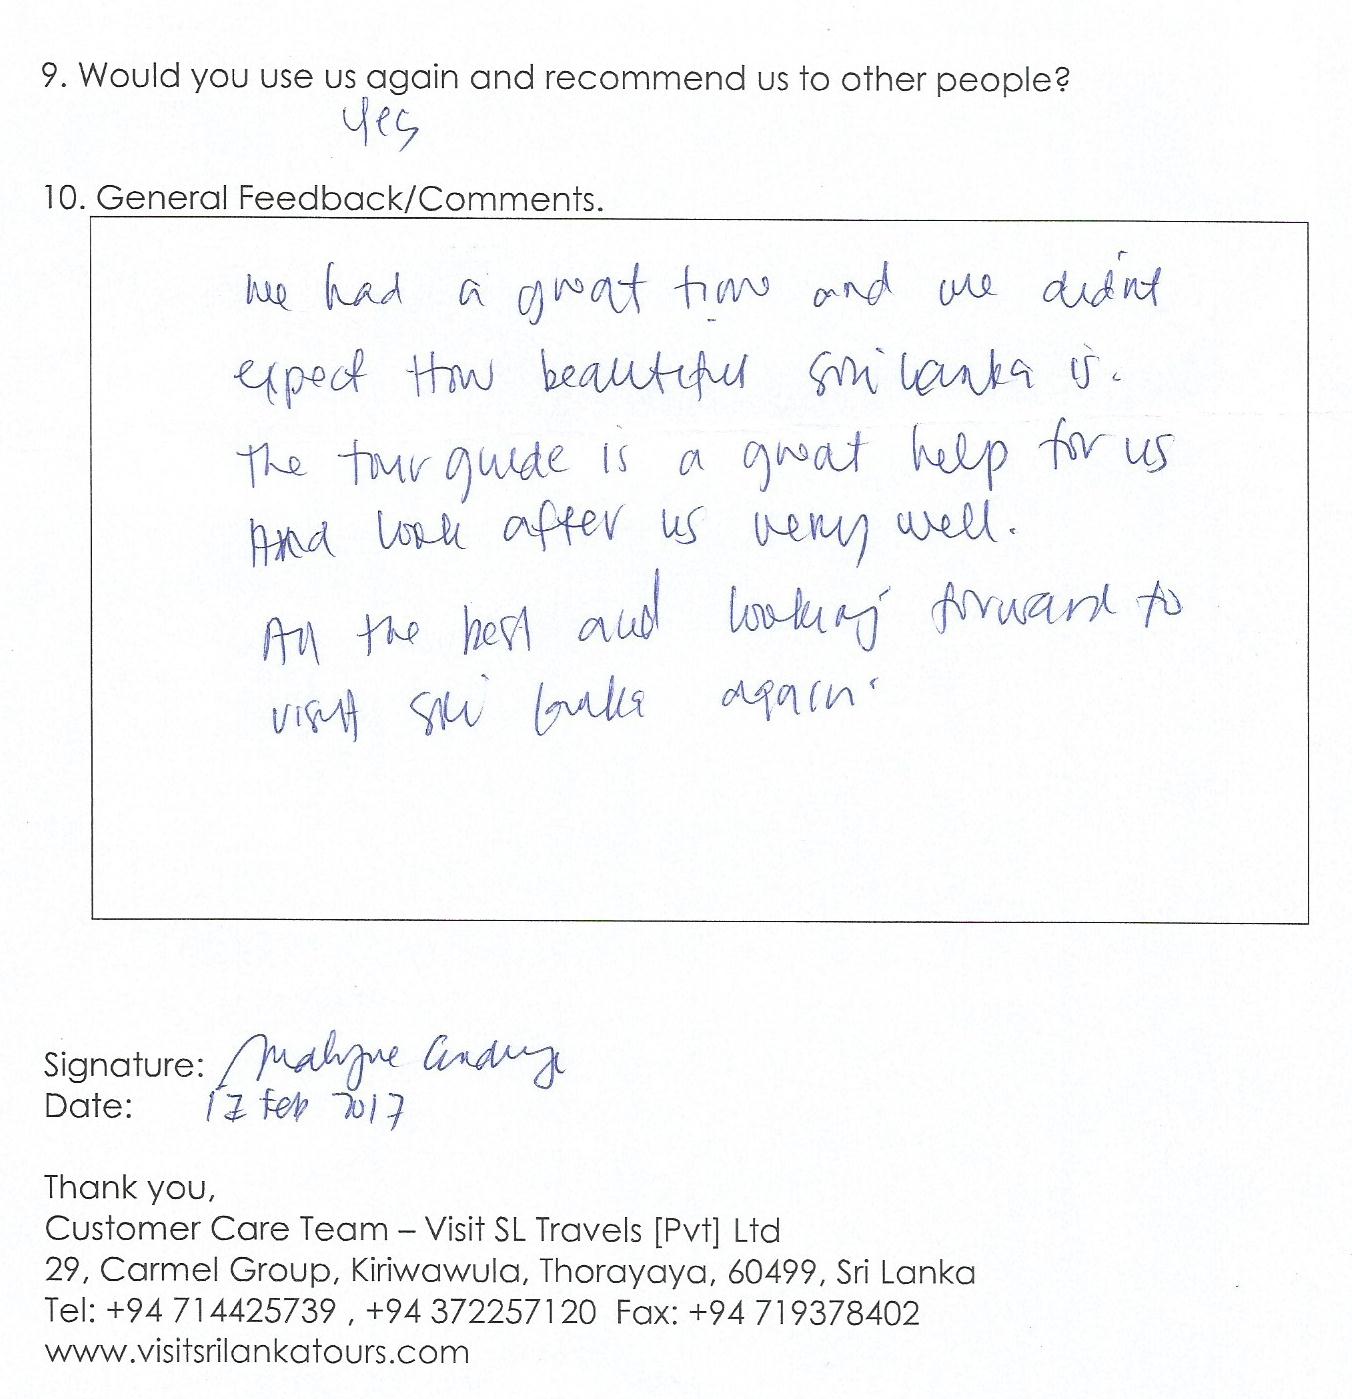 9. Would you use us again and recommend us to other people?
Yes
10. General Feedback/Comments.
We had a great time and we didn't
expect How beautiful Sri Lanka is.
The tour guide is a great help for us
And look after us very well.
All the best and looking forward to
visit Sri Lanka again.
Signature:
Date: 17 Feb 2017
Thank you,
Customer Care Team – Visit SL Travels [Pvt] Ltd
29, Carmel Group, Kiriwawula, Thorayaya, 60499, Sri Lanka
Tel: +94 714425739 , +94 372257120 Fax: +94 719378402
www.visitsrilankatours.com